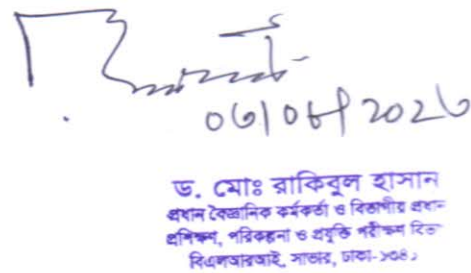 ড. মোঃ রাকিবুল হাসান
প্রধান বৈজ্ঞানিক কর্মকর্তা ও বিভাগীয় প্রধান
প্রশিক্ষণ, পরিকল্পনা ও প্রযুক্তি পরীক্ষণ বিভা
বিএলআরআই, সাভার, ঢাকা-১৩৪১